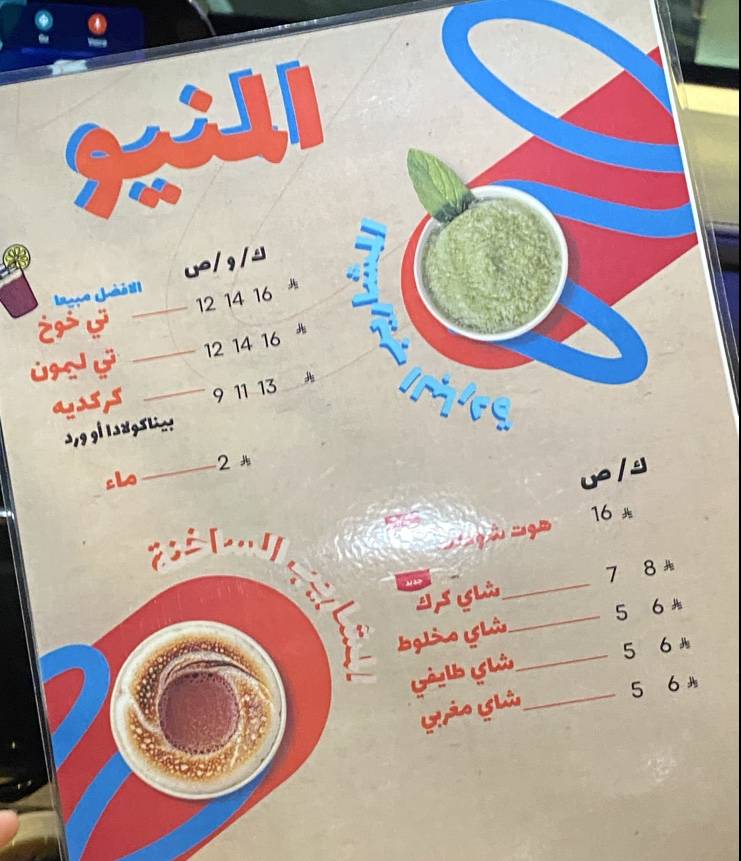 المنيو
المشاريب الباردة
ك / و / ص
الافضل مبيعا
تي خوخ 12 14 16
تي ليمون 12 14 16
كركديه 9 11 13
بيناكولادا أو ورد
ماء 2
المشاريب الساخنة
ك / ص
هوت 16
جديد
شاي كرك 7 8
شاي مخلوط 5 6
شاي طايفي 5 6
شاي مغربي 5 6